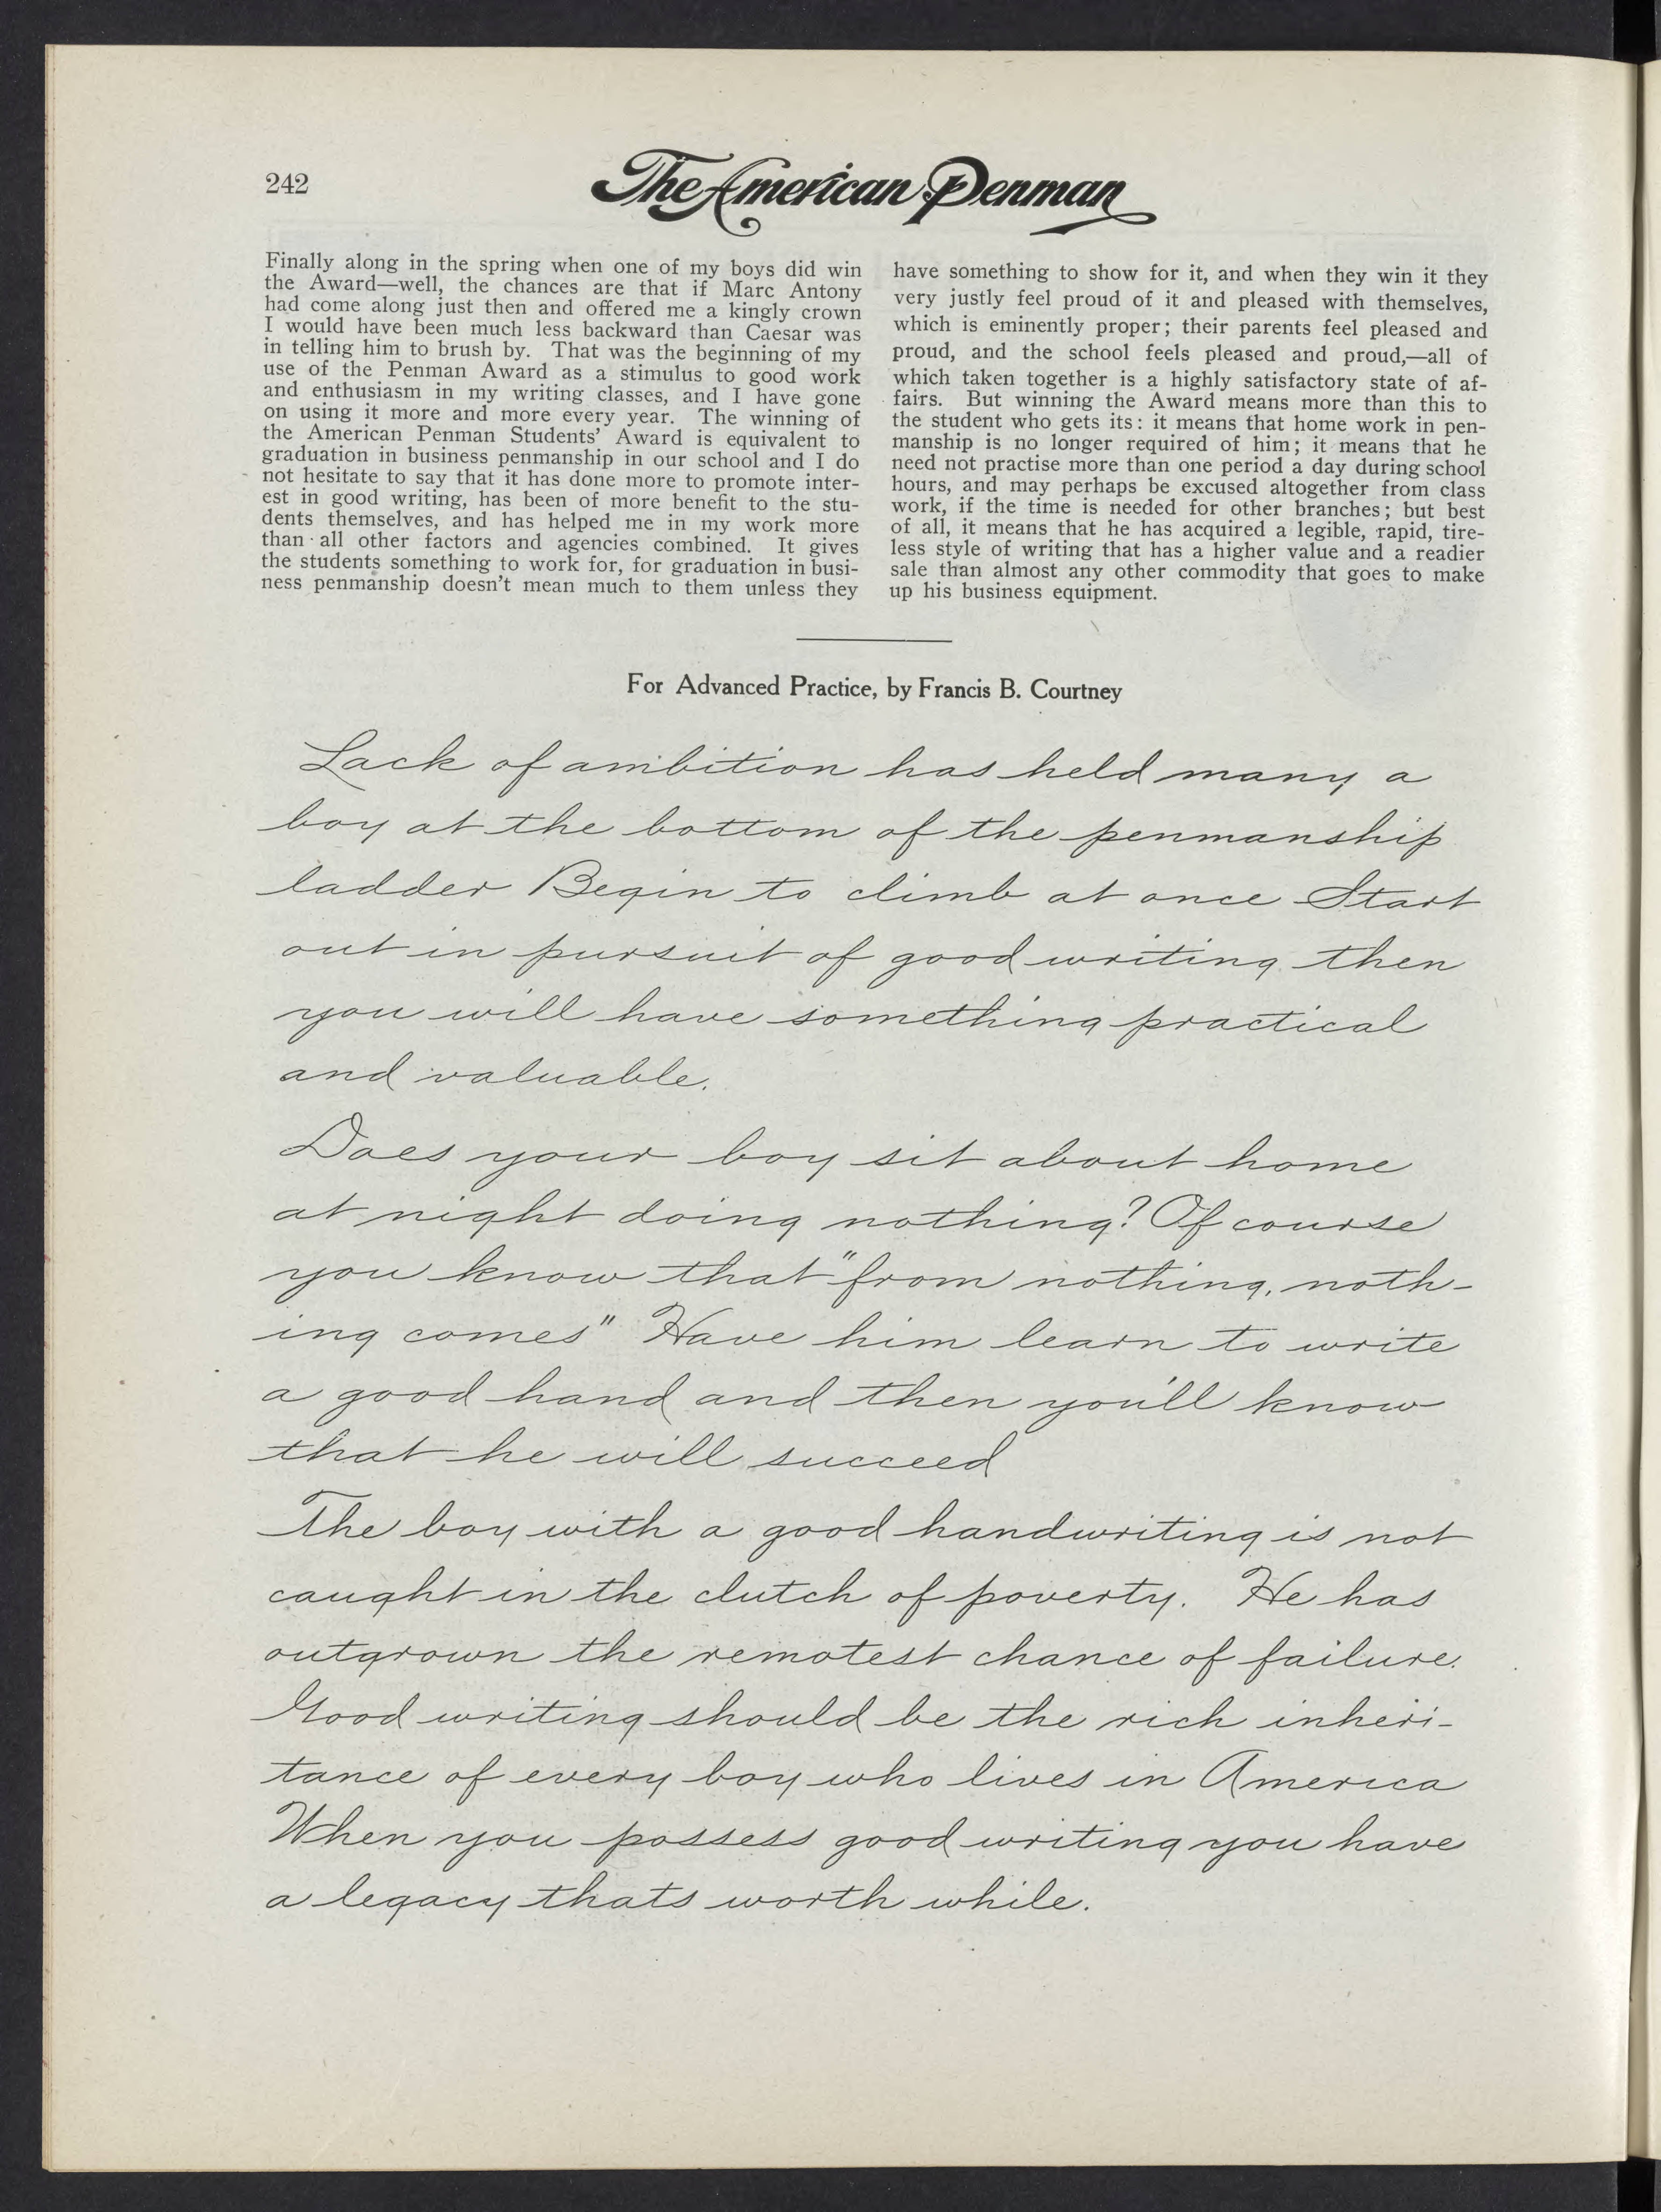 242
The American Penman
Finally along in the spring when one of my boys did win
the Award—well, the chances are that if Marc Antony
had come along just then and offered me a kingly crown
I would have been much less backward than Caesar was
in telling him to brush by. That was the beginning of my
use of the Penman Award as a stimulus to good work
and enthusiasm in my writing classes, and I have gone
on using it more and more every year. The winning of
the American Penman Students' Award is equivalent to
graduation in business penmanship in our school and I do
not hesitate to say that it has done more to promote inter-
est in good writing, has been of more benefit to the stu-
dents themselves, and has helped me in my work more
than all other factors and agencies combined. It gives
the students something to work for, for graduation in busi-
ness penmanship doesn't mean much to them unless they
have something to show for it, and when they win it they
very justly feel proud of it and pleased with themselves,
which is eminently proper; their parents feel pleased and
proud, and the school feels pleased and proud,—all of
which taken together is a highly satisfactory state of af-
fairs. But winning the Award means more than this to
the student who gets its: it means that home work in pen-
manship is no longer required of him; it means that he
need not practise more than one period a day during school
hours, and may perhaps be excused altogether from class
work, if the time is needed for other branches; but best
of all, it means that he has acquired a legible, rapid, tire-
less style of writing that has a higher value and a readier
sale than almost any other commodity that goes to make
up his business equipment.
For Advanced Practice, by Francis B. Courtney
Lack of ambition has held many a
boy at the bottom of the penmanship
ladder Begin to climb at once Start
out in pursuit of good writing then
you will have something practical
and valuable.
Does your boy sit about home
at night doing nothing? Of course
you know that "from nothing, noth-
ing comes" Have him learn to write
a good hand and then you'll know
that he will succeed
The boy with a good handwriting is not
caught in the clutch of poverty. He has
outgrown the remotest chance of failure.
Good writing should be the rich inheri-
tance of every boy who lives in America
When you possess good writing you have
a legacy thats worth while.